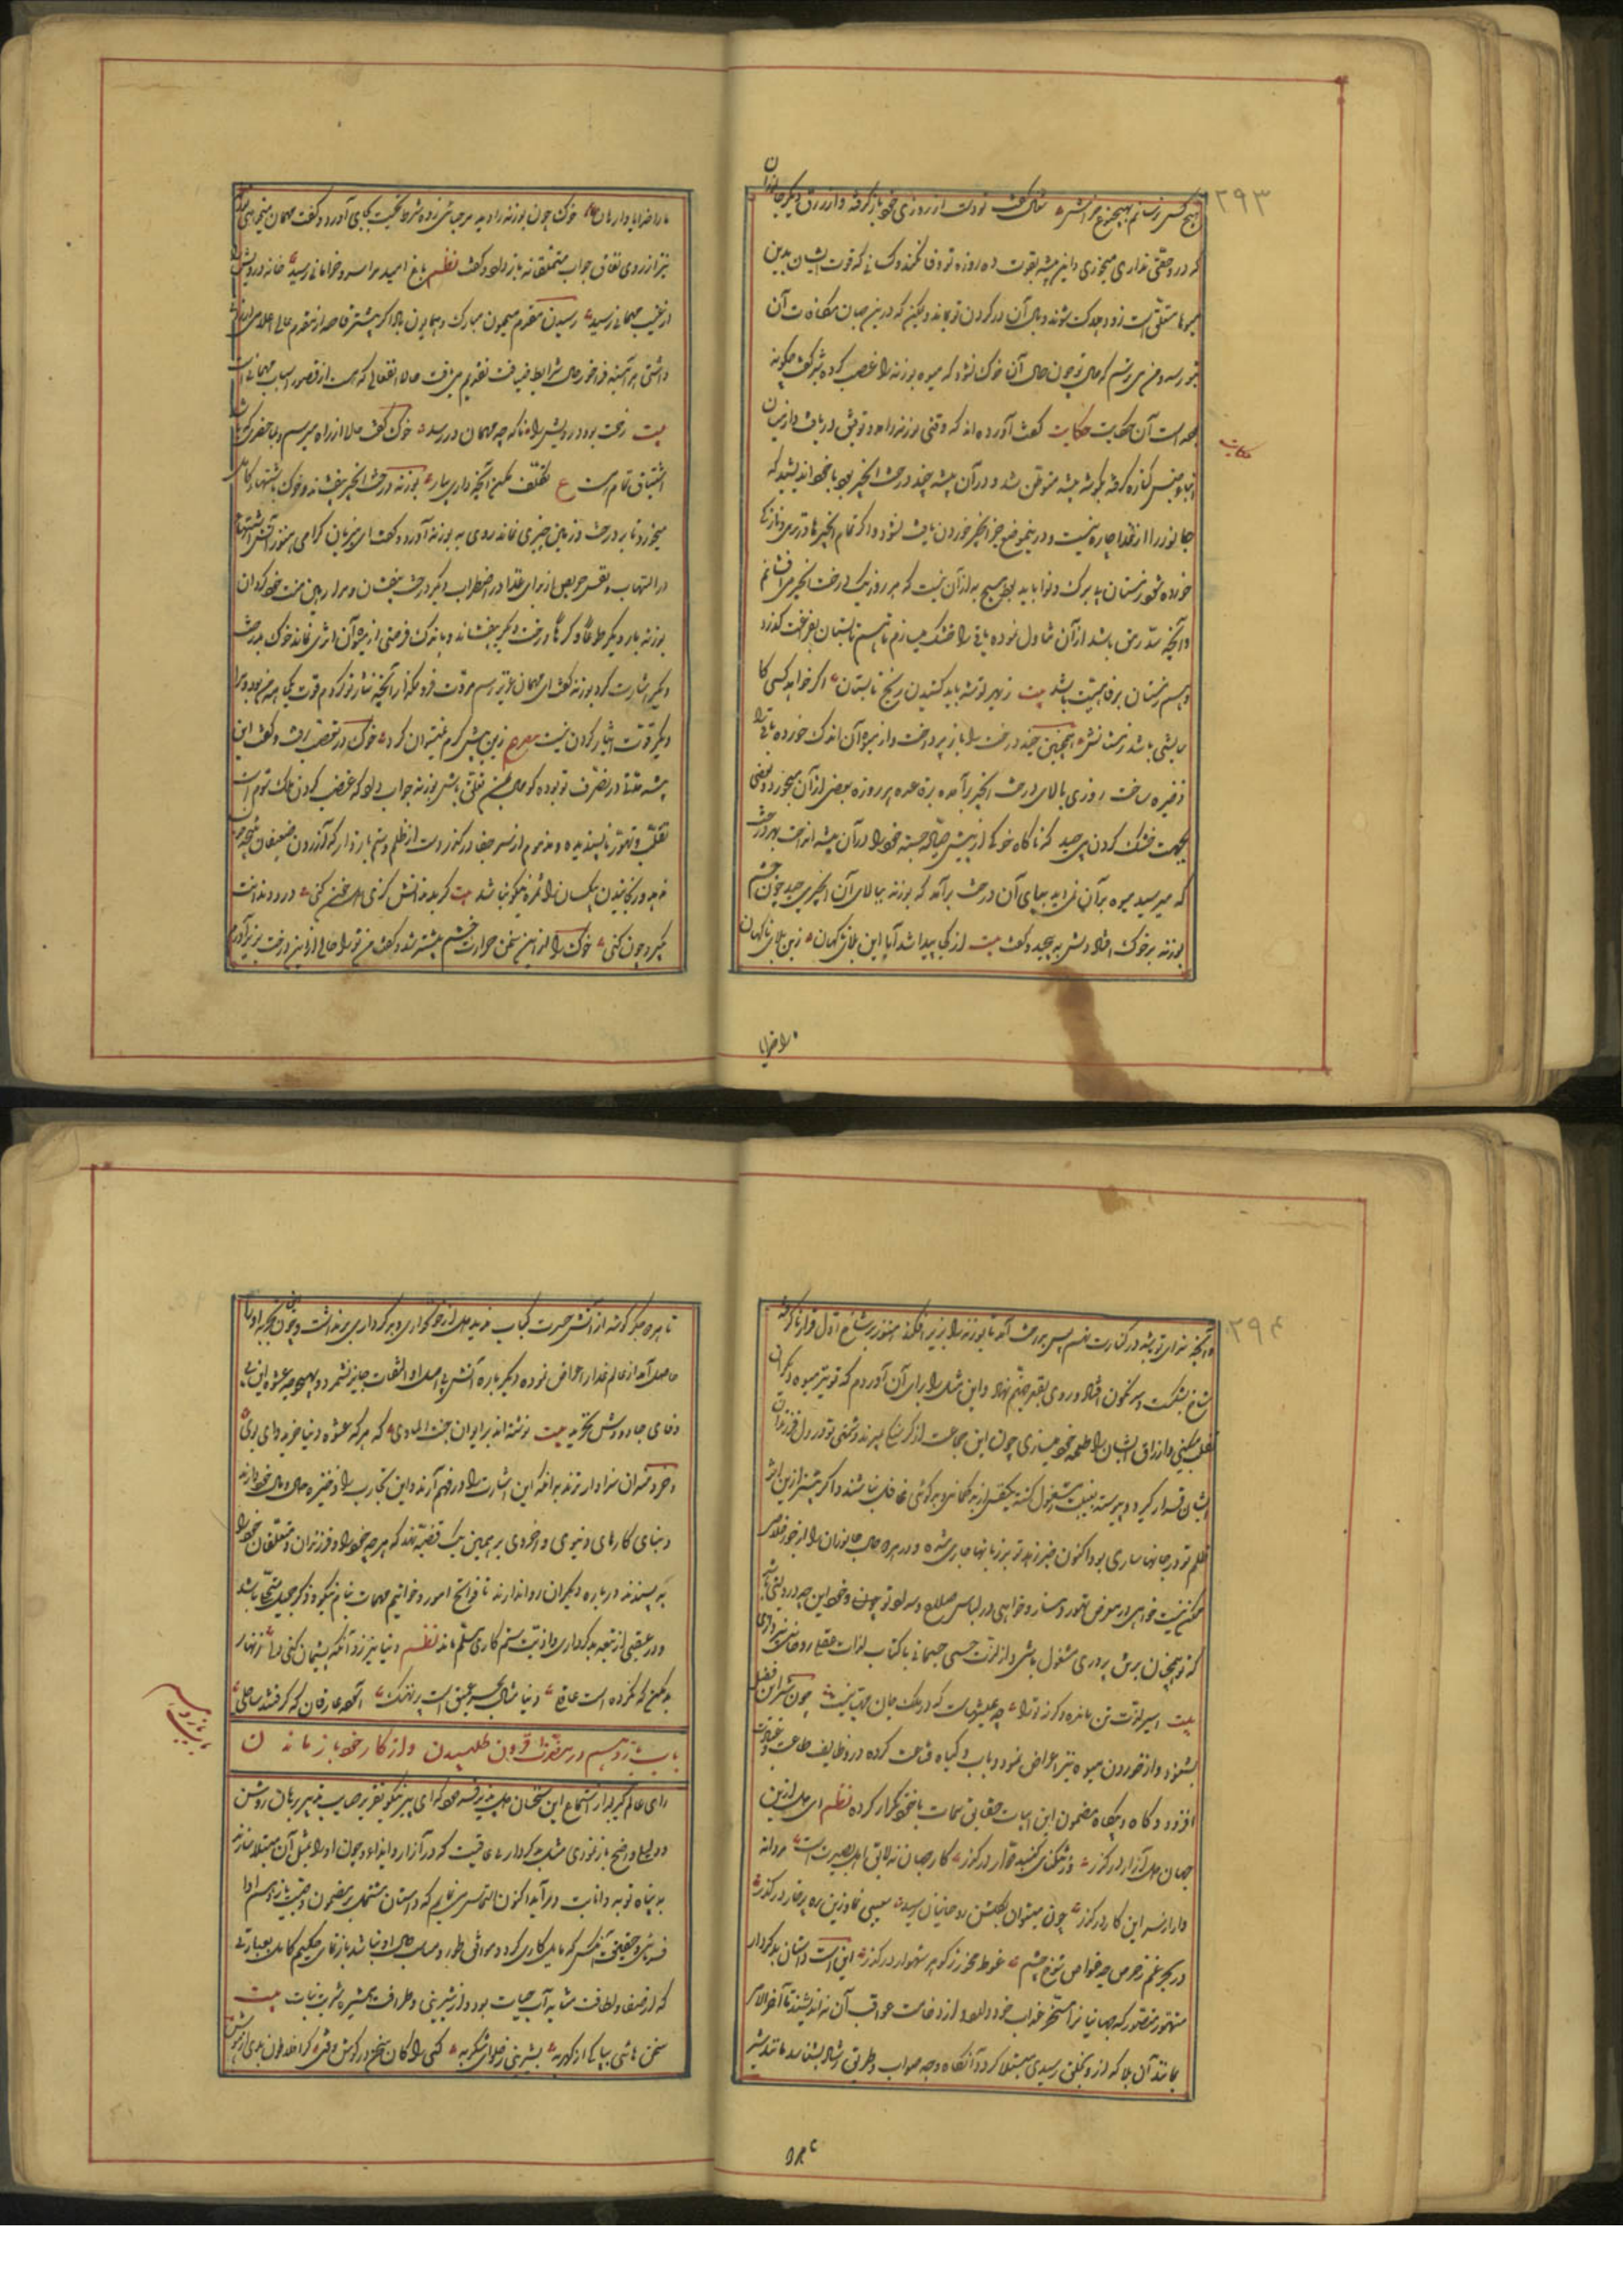 ۲۹۳
هیچ کس نرسانم بهیچ نوع شغال گفت تو دست از روزی خود باز گرفته و از رزق دیگر جانوران
که در و حقی نداری میخوری و این بیشه بقوت ده روزه تو وفا نکند و کسانی که قوت ایشان بدین
میوها متعلق است زود هلاک شوند و وبال آن در گردن تو بماند و یمکن که درین جهان مکافات آن
بتو رسد و من می ترسم که حال تو چون حال آن خوک نشود که میوه بوزنه را غصب کرده شیر گفت چگونه
بوده است آن حکایت حکایت گفت آورده اند که وقتی بوزنه را مدد توفیق دریافت و از میان
ابنا جنس کناره گرفته بگوشه بیشه متوطن شد و در آن بیشه چند درخت انجیر بود با خود اندیشید که
جانور را از غذا چاره نیست و درین موضع جز انجیر خوردن یافت نشود و اگر تمام انجیرها در تری و تازگی
خورده شود زمستان بی برگ و نوا باید بود هیچ به از آن نیست که هر روز یک درخت انجیر می افشانم
و آنچه سد رمق باشد از آن تناول نموده باقی را خشک میسازم تا هم تابستان بفراغت گذرد
و هم زمستان برفاهیت باشد بیت ز بهر توشه باید کشیدن رنج تابستان اگر خواهد کسی کا
سایشی باشد زمستانش همچنین چند درخت را باز پرداخت و از میوه آن اندک خورده باقی را
ذخیره ساخت روزی بالای درخت انجیر برآمده بقاعده هر روزه بعضی از آن میخورد و بعضی
بجهت خشک کردن می چید که ناگاه خوکی از پیش صیاد جسته خود را در آن بیشه انداخت بهر درخت
که میرسید میوه بر آن نمی دید بپای آن درخت برآمد که بوزنه ببالای آن انجیر می چید چون چشم
بوزنه بر خوک افتاد دلش به پیچید و گفت بیت از کجا پیدا شد آیا این بلای ناگهان زین بلای ناگهان
حکایت
ما را خدایا
ما را خدایا وارهان خوک چون بوزنه را دید مرحبائی زده شرط تحیت بجای آورد و گفت مهمان میخواهی بوزنه
نیز از روی نفاق جواب متملقانه باز داد و گفت نظم باغ امید مرا سرو خرامانی رسید خانه درویش را
از غیب مهمانی رسید رسیدن مقدم میمون مبارک و همایون باد اگر پیشتر قاصد از مقدم عالی اعلامی ارزانی
داشتی هر آینه فراخور حال شرایط ضیافت تقدیم می یافت حالا انفعالی که هست از قصور اسباب مهمانیست
بیت رخت بود درویش را ناگه چو مهمان در رسد خوک گفت حالا از راه میرسم و بما حضری که باشد
اشتیاق تمام است ع تکلف مکن آنچه داری بیار بوزنه درخت انجیر بیفشاند و خوک باشتهاء کامل
میخورد تا بر درخت و زمین چیزی نماند روی به بوزنه آورد و گفت ای میزبان گرامی هنوز آتش اشتها
در التهاب و نفس حریص از برای غذا در اضطراب دیگر درخت بیفشان و مرا رهین منت خود گردان
بوزنه بار دیگر طوعا و کرها درخت دیگر بیفشاند و باندک فرصتی از میوه آن اثری نماند خوک بدرخت
دیگر اشارت کرد بوزنه گفت ای مهمان عزیز رسم مروت فرو مگذار آنچه نثار تو کردم قوت یکماهه من بود و مرا
دیگر قوت ایثار کردن نیست مصرع زین بیش کرم نمیتوان کرد خوک در غضب رفت و گفت این
بیشه مدتها در تصرف تو بوده گو حالا بمن تعلق باش بوزنه جواب داد که غصب کردن ملک مردم است
تغلب و تهور ناپسندیده و مذموم از سر جفا درگذر و دست از ظلم و ستم باز دار که آزردن ضعیفان نتیجه خوب
ندهد و رنجانیدن بیکسان را ثمره نیکو نباشد بیت
دیگر چون کنی خوک را ازین سخن حرارت خشم بیشتر شد و گفت من ترا حالی از این درخت بزیر آورم
۲۹۴
و آنچه سزای تو باشد در کنارت نهم پس بدرخت آمد تا بوزنه را بزیر افکند هنوز بر شاخ اول قرار ناگرفته
شاخ بشکست و سرنگون افتاد و روی بقعر جهنم نهاد و این مثل را برای آن آوردم که تو نیز میوه دیگران
غصب میکنی و ارزاق ایشان را طعمه خود میسازی چون این جماعت از گرسنگی بمیرند دشمنی تو در دل فرزندان
ایشان قرار گیرد و پیوسته بغیبت مشغول گشته یکنفس از بدگمانی و بدگوئی غافل نباشند و اگر پیشتر ازین اثر
ظلم تو در جانها ساری بود اکنون خبر زهد تو بر زبانها جاری شده و در هر دو حال جانوران را از جور خلاص
ممکن نیست خواهی در معرض تهور و فساد و خواهی در لباس صلاح و سداد تو چونی و خود این چه درویشی باشد
که تو همچنان برتن پروری مشغول باشی و از لذت حسی جسمانی باکتساب لذات عقلی روحانی نپردازی
بیت اسیر لذت تن مانده و گرنه ترا چه عیشهاست که در ملک جان مهیا نیست چون شیر این فصل
بشنود و از خوردن میوه نیز اعراض نمود و بآب و گیاه قناعت کرده در وظایف طاعت و عبادت
افزود و گاه و بیگاه مضمون این ابیات حقایق سمات با خود تکرار کرده نظم ای دل ازین
جهان دل آزار درگذر وز تنگنای گنبد دوار درگذر کار جهان نه لایق اهل بصیرت است مردانه
وار از سر این کار درگذر چون میتوان بگلشن روحانیان رسید سعیی نما و زین ره پرخار درگذر
در بحر غم ز حرص چو غواص شوخ چشم غوطه مخور ز گوهر شهوار درگذر این است داستان بدکردار
متهور متصور که جهانیانرا مسخر عذاب خود دارد از وخامت عواقب آن نه اندیشد تا آخر الامر
بمانند آن بلا که از و بخلق رسیدی مبتلا گردد و آنگاه وجه صواب و طریق رشاد بشناسد مانند شیر
تا بهر دو جگر گوشه از آتش حسرت کباب ندید دل از خونخواری و بدکرداری برنداشت و چون تجربه او را
حاصل آمد از عالم غدار اعراض نموده دیگر باره آتش بی اصل او التفات جایز نشمرد و بهیچ وجه عشوه این بی
وفای جادو وش نخرید بیت نوشته اند بر ایوان جنت المأوی که هر که عشوه دنیا خرید وای بوی
و خردمندان سزاوارترند بدانکه این اشارت را در فهم آرند و این تجارب را ذخیره حال و مآل خود سازند
و بنای کارهای دنیوی و اخروی بر همین یک قضیه نهند که هر چه خود را و فرزندان و متعلقان خود را
نه پسندند درباره دیگران روا ندارند تا فواتح امور و خواتیم مهمات بنام نیکو و ذکر جمیل متحلی باشد
و در عقبی از تبعه بدکرداری و اذیت ستم کاری مسلم ماند نظم دنیا نیرزد آنکه پریشان کنی دلی زنهار
بد مکن که نکرده است عاقلی دنیا مثال بحر عمیق است پر نهنگ آسوده عارفان که گرفتند ساحلی
باب یازدهم در مضرت افزون طلبیدن و از کار خود باز ماندن
باب یازدهم
رای عالم گیر بعد از استماع این سخنان دلپذیر فرمود که ای پیر نیکو تقریر صایب تدبیر برهان روشن
و دلیلی واضح باز نمودی مثل بدکردار بی عاقبت که در آزار و ایذاء و چون او را بمثل آن مبتلا سازند
به پناه توبه و انابت درآید اکنون التماس می نمایم که داستان مشتمل بر مضمون وصیت یازدهم ادا
فرمائی و حقیقت آنکس که مایل کاری گردد و موافق طور و مناسب حال او نباشد باز نمای حکیم کامل بعبارتی
که از صفا و لطافت مشابه آب حیات بود و از شیرینی و ظرافت همشیره شربت نبات بیت